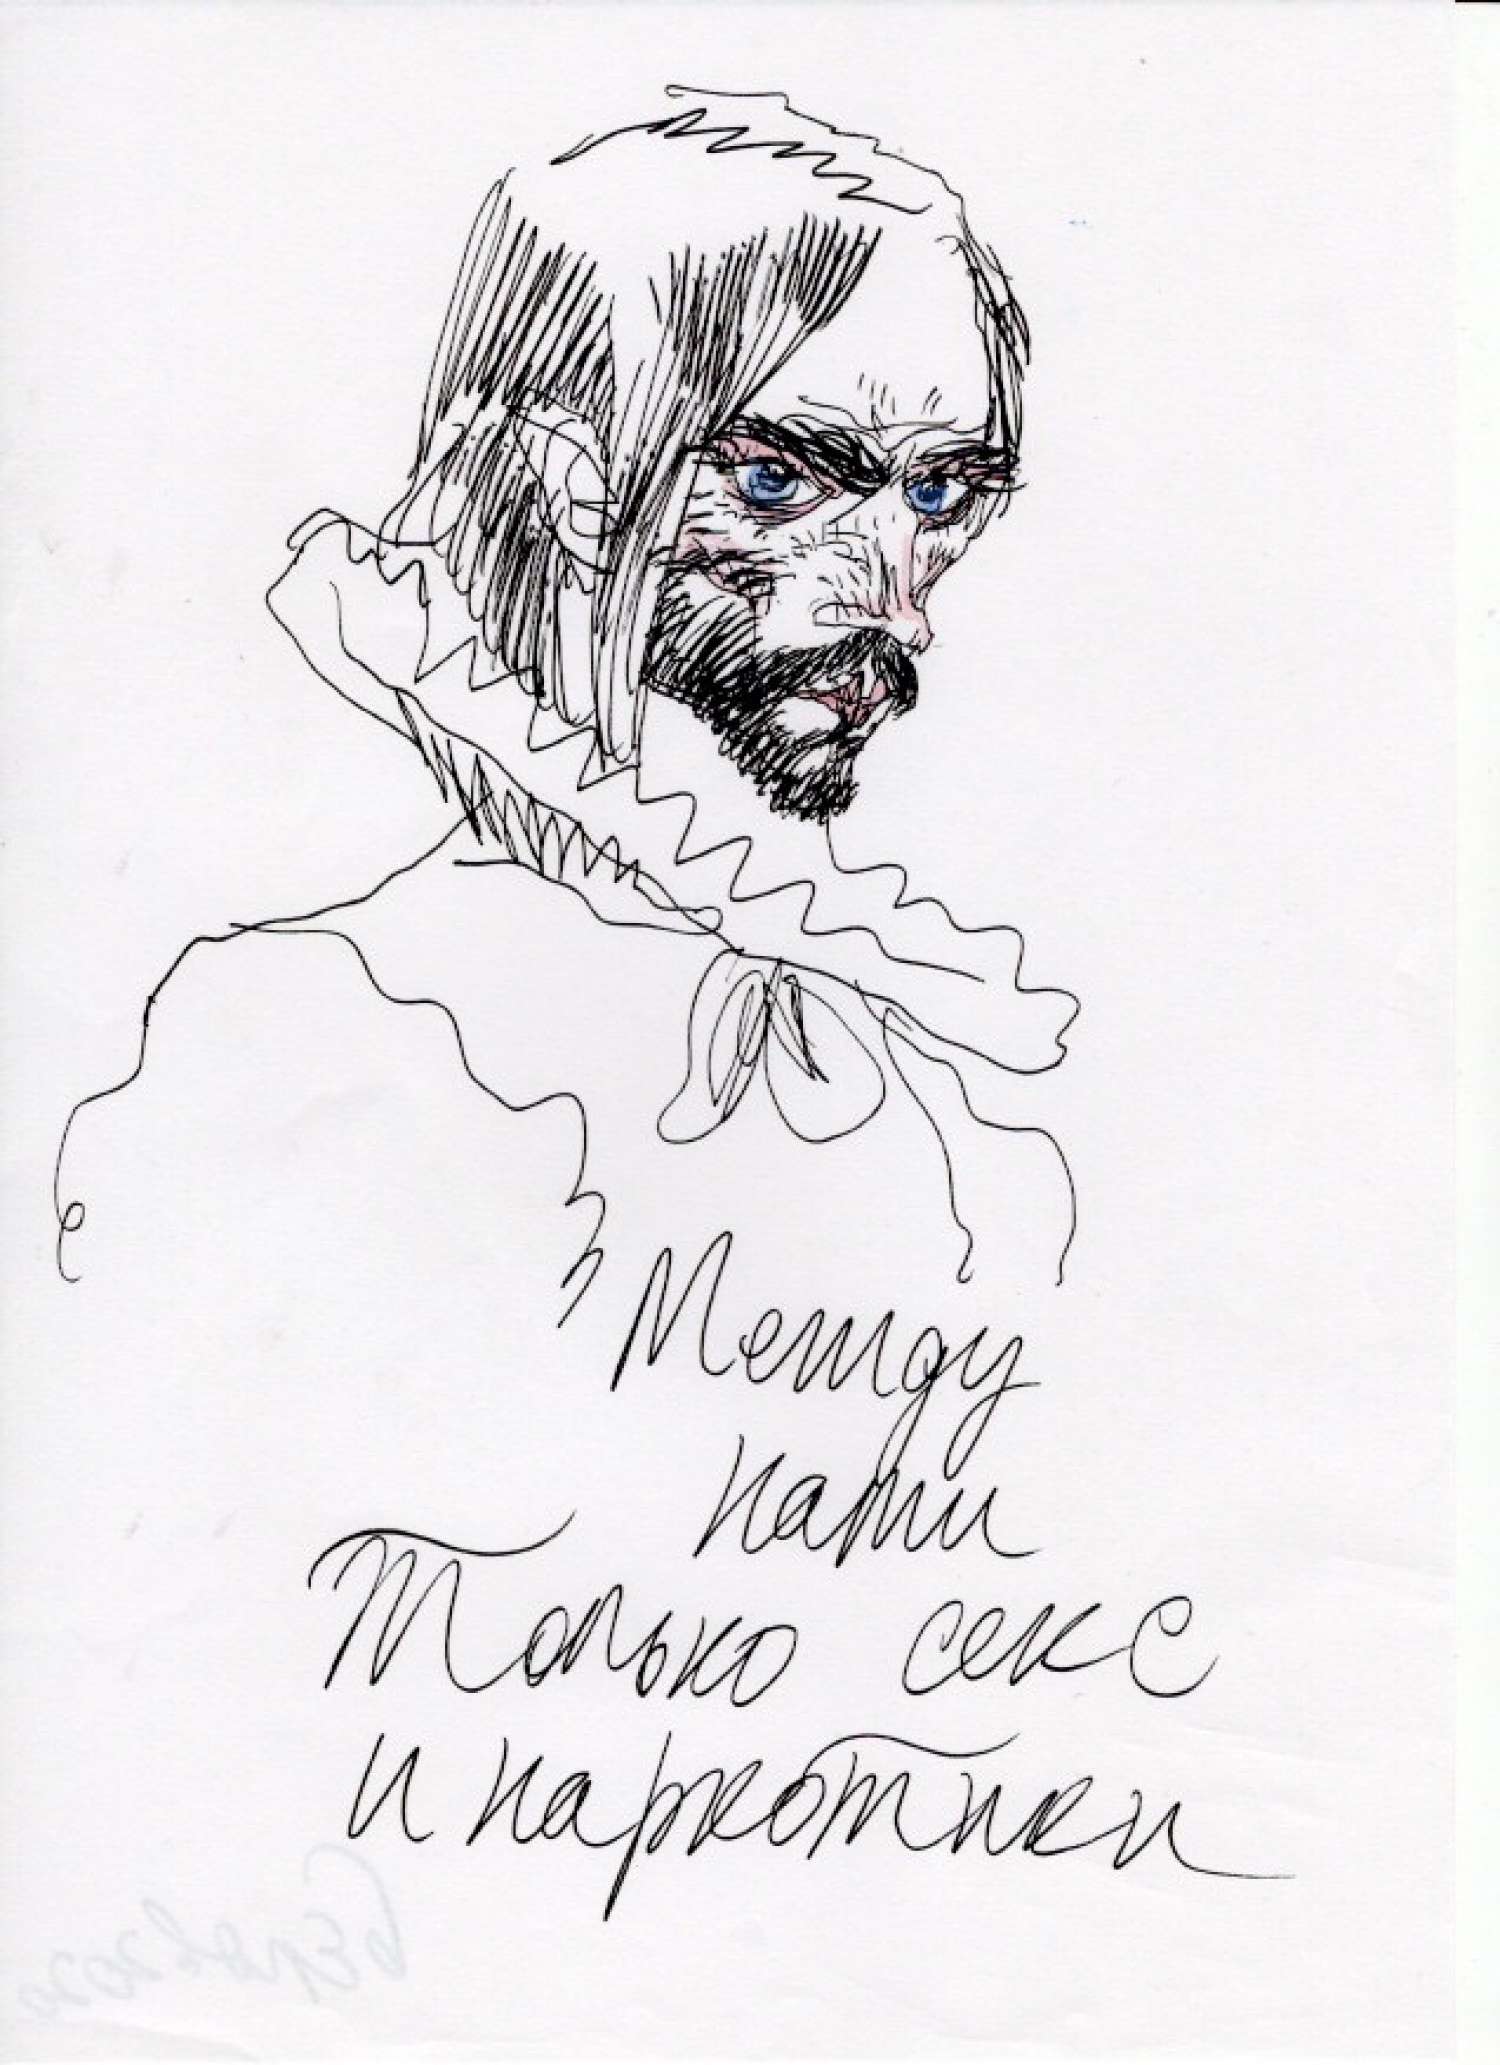 Между
нами
Только секс
и наркотики